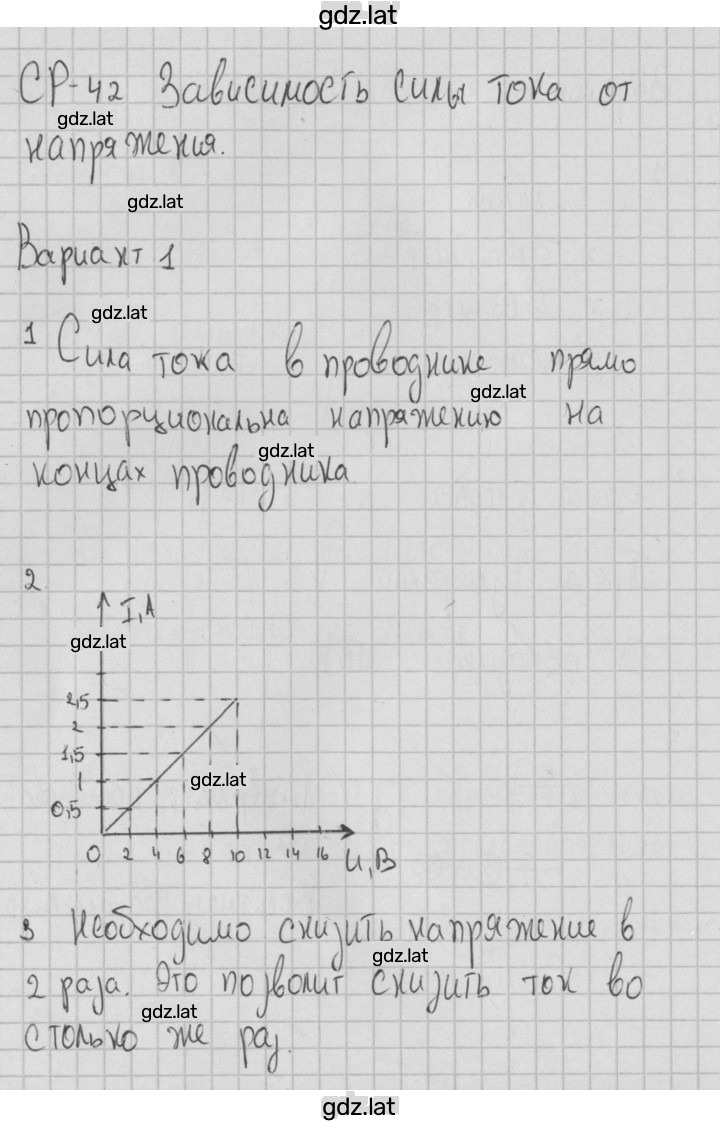 gdz.lat
СР-42 Зависимость силы тока от
gdz.lat
напряжения.
gdz.lat
Вариант 1
gdz.lat
1 Сила тока в проводнике прямо
gdz.lat
пропорциональна напряжению на
gdz.lat
концах проводника
2
I,A
gdz.lat
2,5
2
1,5
gdz.lat
1
0,5
0 2 4 6 8 10 12 14 16 U,B
3 Необходимо снизить напряжение в
gdz.lat
2 раза. Это позволит снизить ток во
gdz.lat
столько же раз.
gdz.lat